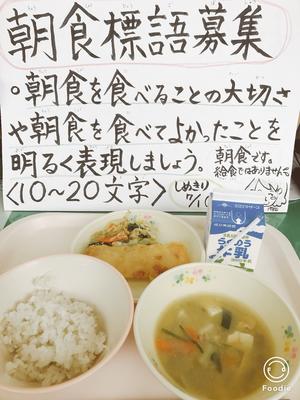 朝食標語募集
○朝食を食べることの大切さ
や朝食を食べてよかったことを
明るく表現しましょう。
朝食です。
給食ではありません
<10〜20文字>
しめきり
牛乳
Foodie